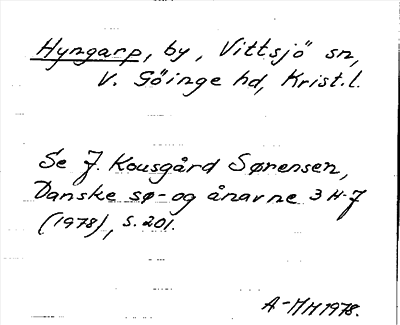 Hyngarp, by, Vittsjö sn,
V. Göinge hd, Krist. l.
Se J. Kousgård Sørensen,
Danske sø- og ånavne 3 H-J
(1978), s. 201.
A-MH 1978.